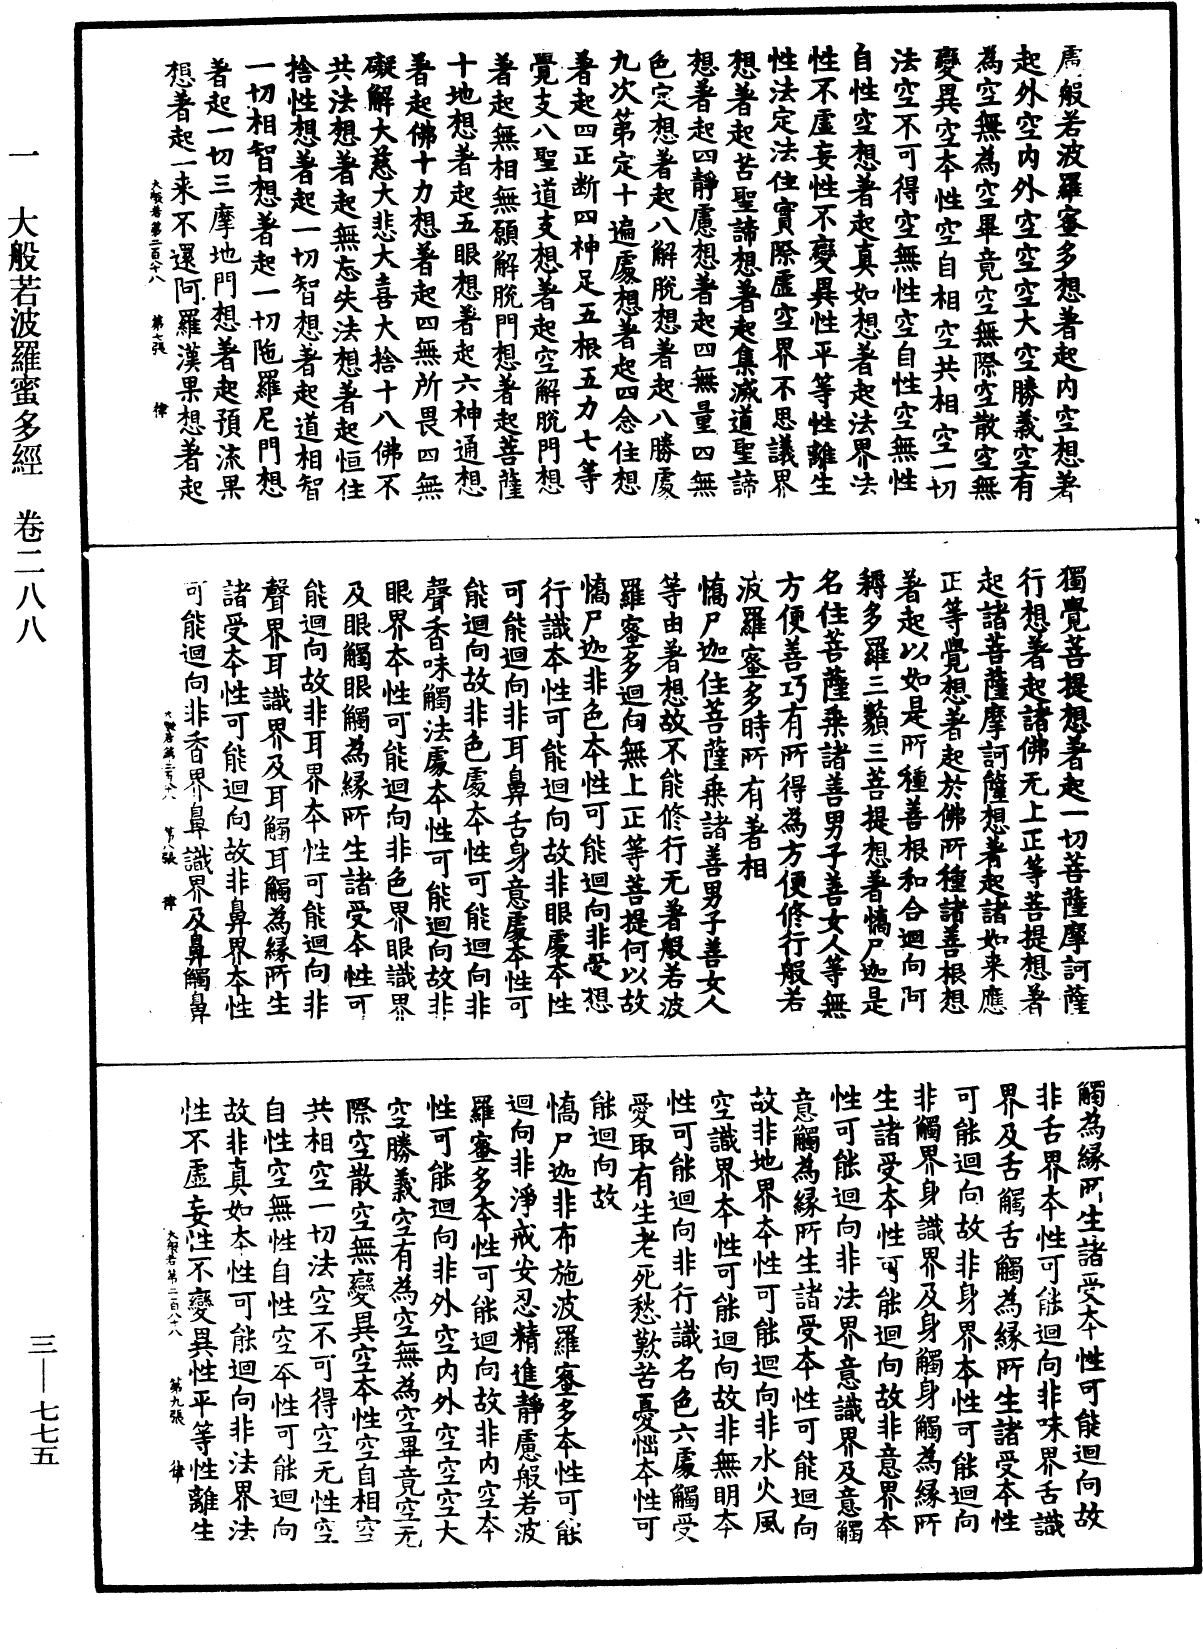 慮般若波羅蜜多想著起內空想著
起外空內外空空空大空勝義空有
為空無為空畢竟空無際空散空無
變異空本性空自相空共相空一切
法空不可得空無性空自性空無性
自性空想著起真如想著起法界法
性不虛妄性不變異性平等性離生
性法定法住實際虛空界不思議界
想著起苦聖諦想著起集滅道聖諦
想著起四靜慮想著起四無量四無
色定想著起八解脫想著起八勝處
九次第定十遍處想著起四念住想
著起四正斷四神足五根五力七等
覺支八聖道支想著起空解脫門想
著起無相無願解脫門想著起菩薩
十地想著起五眼想著起六神通想
著起佛十力想著起四無所畏四無
礙解大慈大悲大喜大捨十八佛不
共法想著起無忘失法想著起恒住
捨性想著起一切智想著起道相智
一切相智想著起一切陁羅尼門想
著起一切三摩地門想著起預流果
想著起一来不還阿羅漢果想著起
大般若第二百八十八 第七張 律
獨覺菩提想著起一切菩薩摩訶薩
行想著起諸佛无上正等菩提想著
起諸菩薩摩訶薩想著起諸如来應
正等覺想著起於佛所種諸善根想
著起以如是所種善根和合迴向阿
耨多羅三藐三菩提想著憍尸迦是
名住菩薩乘諸善男子善女人等無
方便善巧有所得為方便修行般若
波羅蜜多時所有著相
憍尸迦住菩薩乘諸善男子善女人
等由著想故不能修行无著般若波
羅蜜多迴向無上正等菩提何以故
憍尸迦非色本性可能迴向非受想
行識本性可能迴向故非眼處本性
可能迴向非耳鼻舌身意處本性可
能迴向故非色處本性可能迴向非
聲香味觸法處本性可能迴向故非
眼界本性可能迴向非色界眼識界
及眼觸眼觸為緣所生諸受本性可
能迴向故非耳界本性可能迴向非
聲界耳識界及耳觸耳觸為緣所生
諸受本性可能迴向故非鼻界本性
可能迴向非香界鼻識界及鼻觸鼻
大般若第二百八十八 第八張 律
觸為緣所生諸受本性可能迴向故
非舌界本性可能迴向非味界舌識
界及舌觸舌觸為緣所生諸受本性
可能迴向故非身界本性可能迴向
非觸界身識界及身觸身觸為緣所
生諸受本性可能迴向故非意界本
性可能迴向非法界意識界及意觸
意觸為緣所生諸受本性可能迴向
故非地界本性可能迴向非水火風
空識界本性可能迴向故非無明本
性可能迴向非行識名色六處觸受
愛取有生老死愁歎苦憂惱本性可
能迴向故
憍尸迦非布施波羅蜜多本性可能
迴向非淨戒安忍精進靜慮般若波
羅蜜多本性可能迴向故非內空本
性可能迴向非外空內外空空空大
空勝義空有為空無為空畢竟空无
際空散空無變異空本性空自相空
共相空一切法空不可得空无性空
自性空無性自性空本性可能迴向
故非真如本性可能迴向非法界法
性不虛妄性不變異性平等性離生
大般若第二百八十八 第九張 律
一 大般若波羅蜜多經 卷二八八
三—七七五